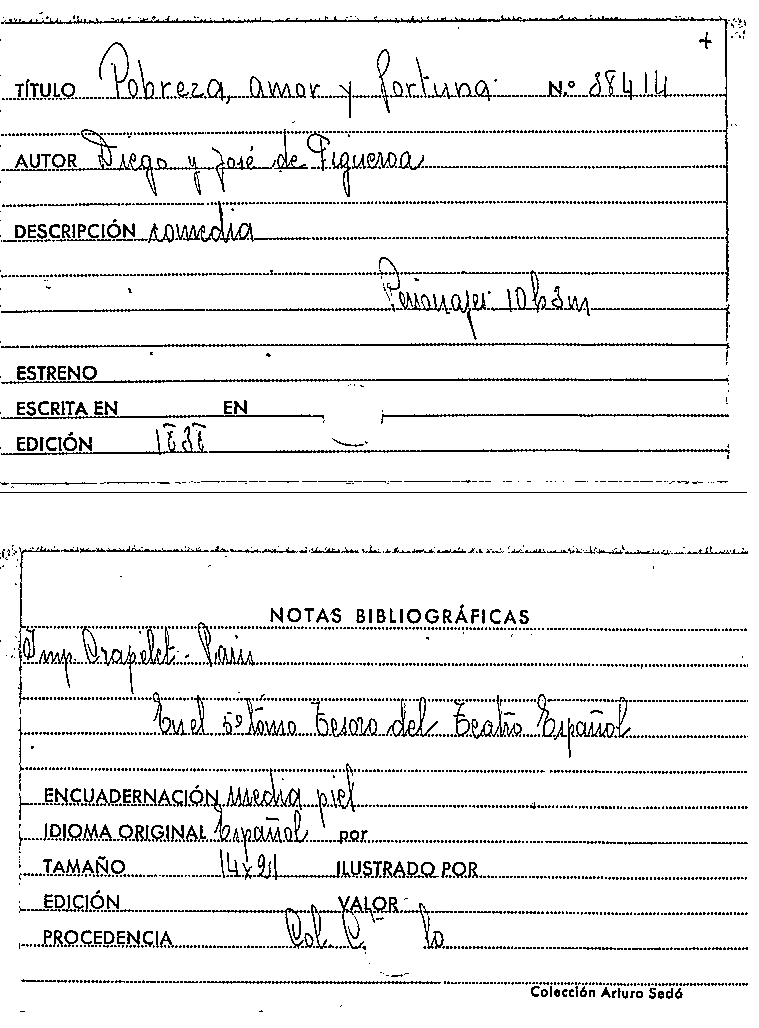 +
TÍTULO Pobreza, amor y fortuna. N.º 38414
AUTOR Diego y José de Figueroa
DESCRIPCIÓN comedia
Personajes: 10h3m
ESTRENO
ESCRITA EN EN
EDICIÓN
NOTAS BIBLIOGRÁFICAS
Imp Crapelet - Paris
En el 5º tomo Tesoro del Teatro Español
ENCUADERNACIÓN media piel
IDIOMA ORIGINAL Español por
TAMAÑO 14x21 ILUSTRADO POR
EDICIÓN VALOR
PROCEDENCIA Col.
Colección Arturo Sedó